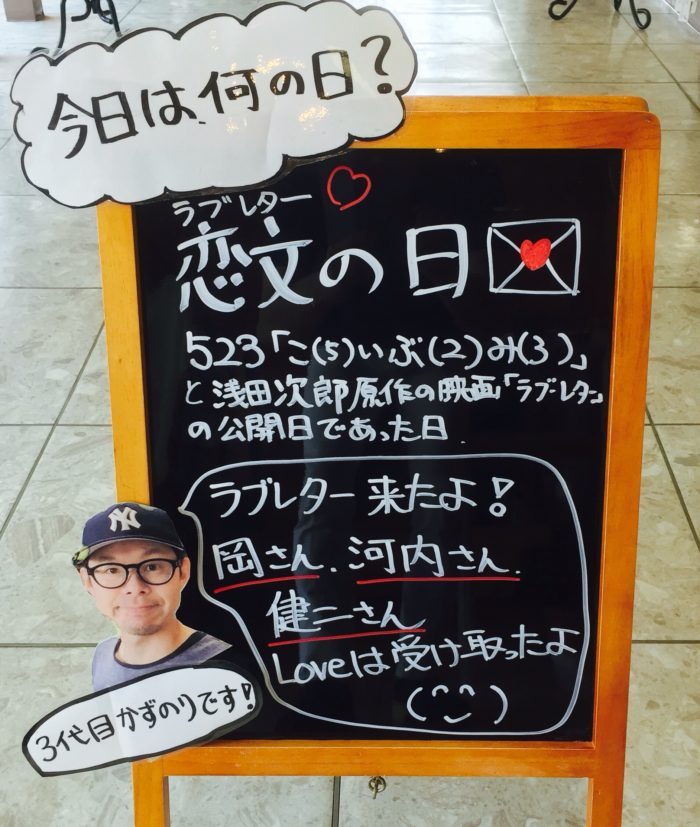 今日は何の日？
ラブレター
恋文の日
523「こ(5)いぶ(2)み(3)」
と浅田次郎原作の映画「ラブレター」
の公開日であった日
ラブレター来たよ！
岡さん、河内さん、
健二さん
Loveは受け取ったよ
(^^)
NY
3代目かずのりです！